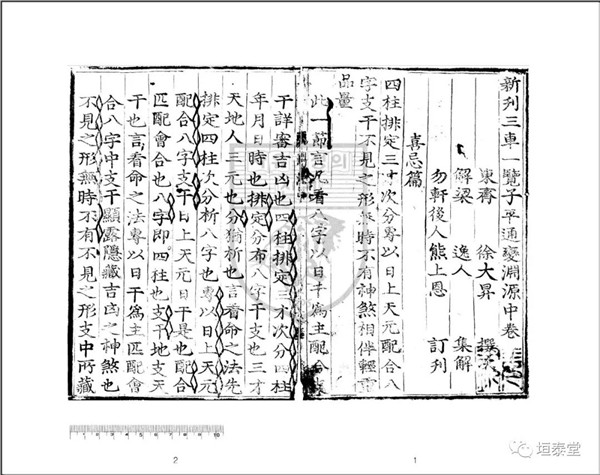 新刊三車一覽子平通變淵源中卷
東齋 徐大昇 撰
解梁 逸人 集解
勿軒後人熊上恩 訂刊
喜忌篇
四柱排定三才次分專以日上天元配合八
字支干不見之形無時不有神煞相伴輕重
品量
此一節言凡看八字以日干爲主配合
干詳審吉凶也四柱排定三才次分四柱
年月日時也排定分布八字干支也三才
天地人三元也分猶析也言看命之法先
排定四柱次分析八字也專以日上天元
配合八字支干日上天元日干是也配合
匹配會合也八字即四柱也支干地支天
干也言看命之法專以日干爲主匹配會
合八字中支干顯露隱藏吉凶之神煞也
不見之形無時不有不見之形支中所藏
2
1
垣泰堂